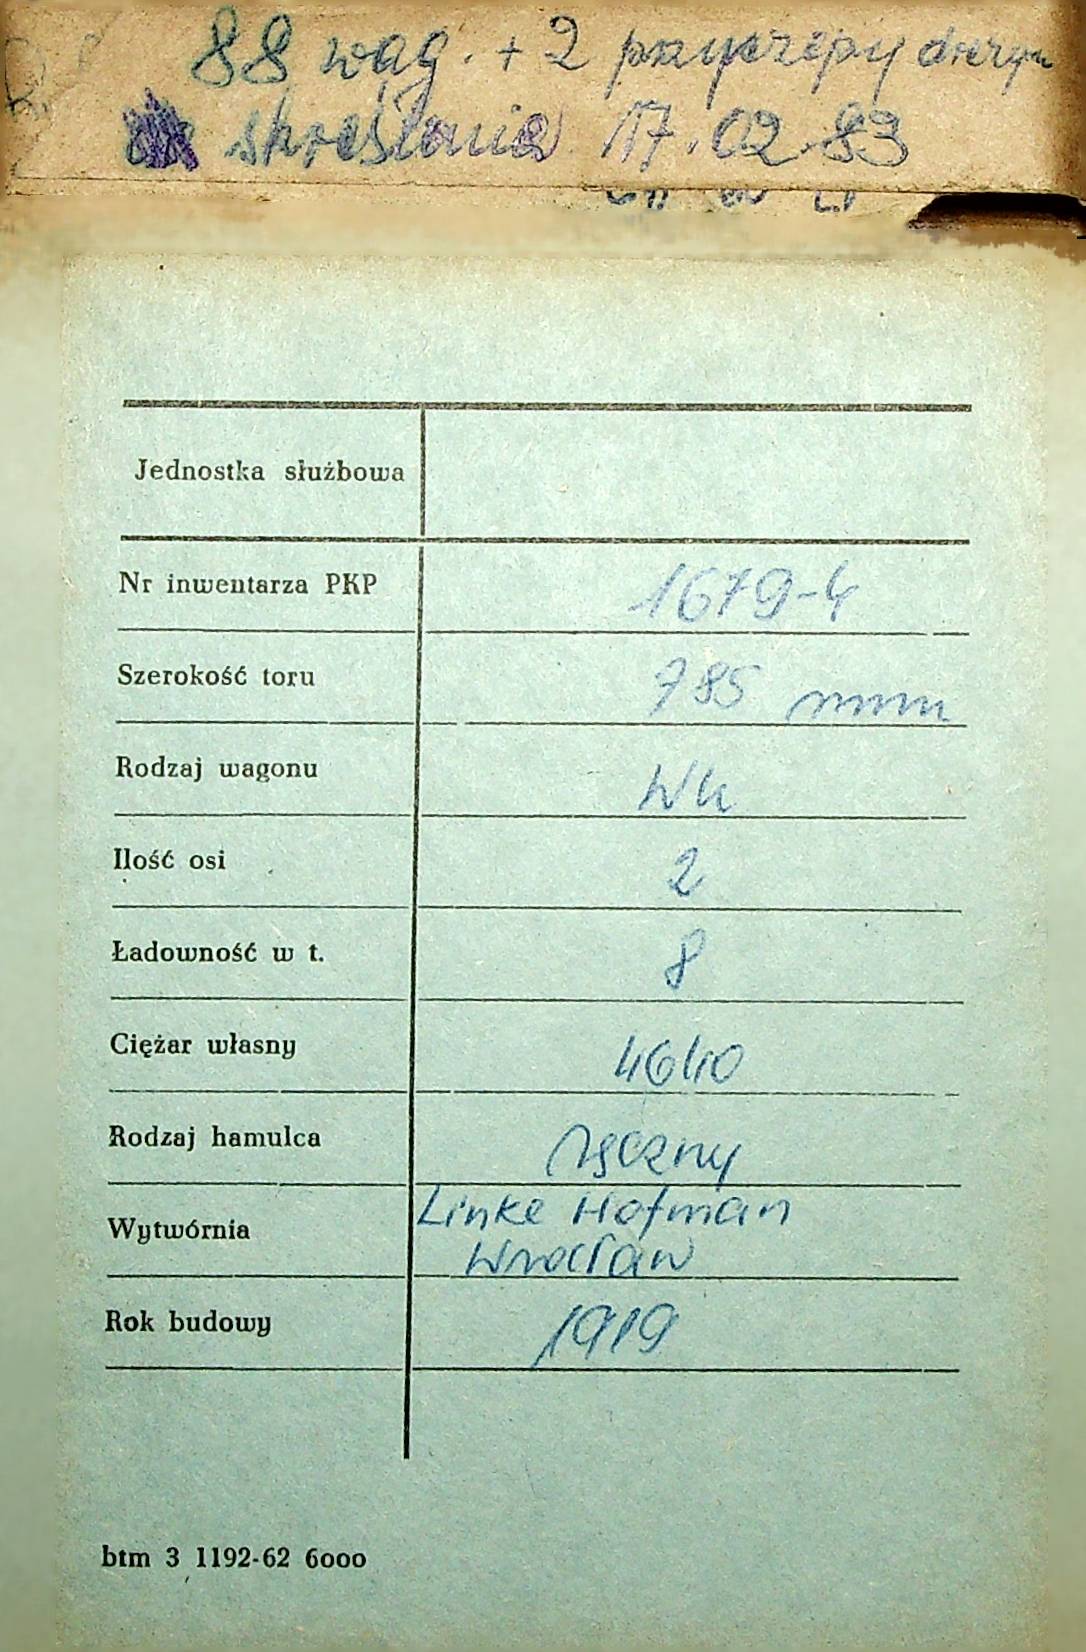 88 wag. + 2 przyczepy drezyn
skreślenie 17.02.83
Jednostka służbowa
Nr inwentarza PKP 1679-4
Szerokość toru 785 mm
Rodzaj wagonu Wk
Ilość osi 2
Ładowność w t. 8
Ciężar własny 4640
Rodzaj hamulca ręczny
Linke Hofman
Wytwórnia Wrocław
Rok budowy 1919
btm 3 1192-62 6000